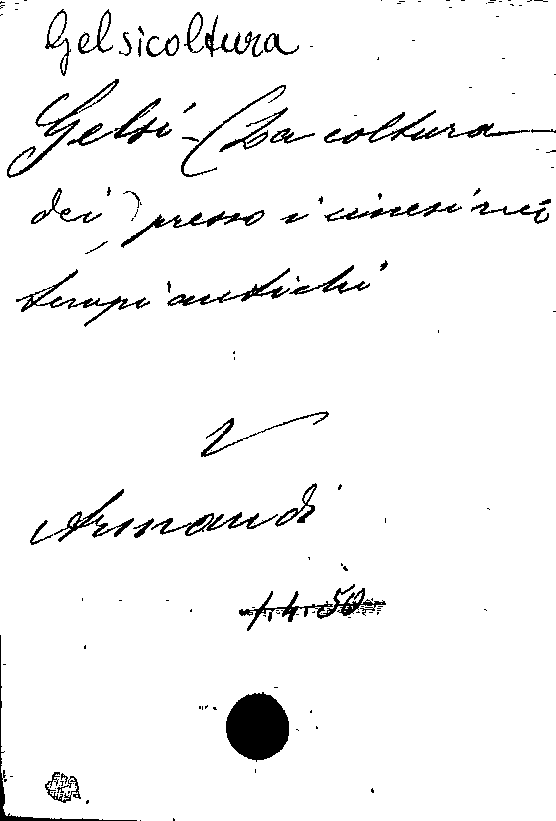 Gelsicoltura
Gelsi - (La coltura
dei) presso i cinesi nei
tempi antichi
V
Armandi
1.4.50